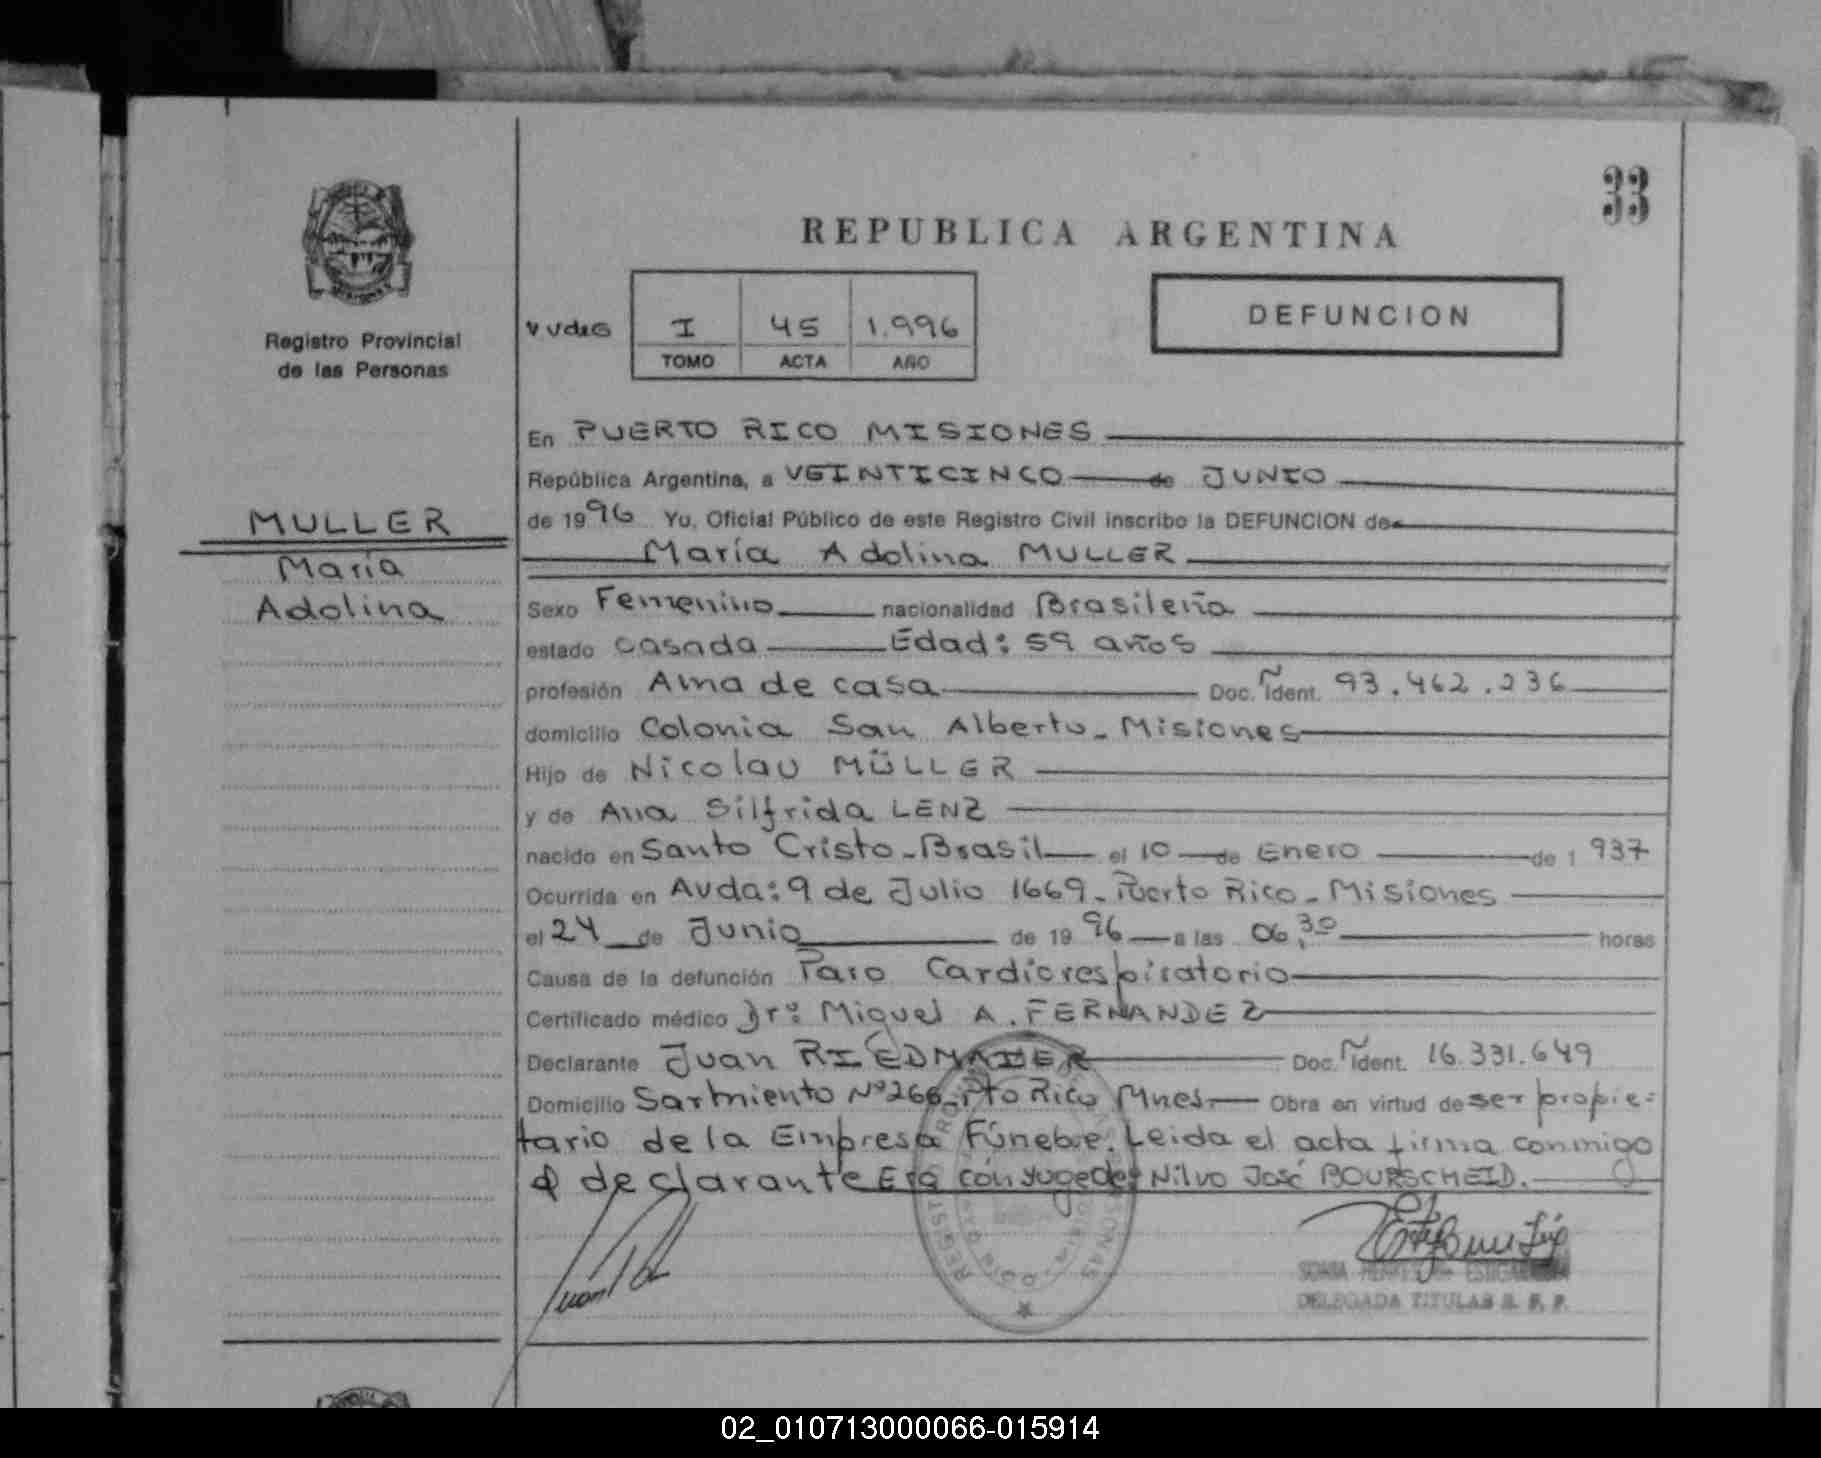 33
REPUBLICA ARGENTINA
DEFUNCION
Registro Provincial
de las Personas
I 45 1.996
TOMO ACTA AÑO
En PUERTO RICO MISIONES
República Argentina, a VEINTICINCO de JUNIO
de 1996 Yo, Oficial Público de este Registro Civil inscribo la DEFUNCION de
María Adolina MULLER
MULLER
María
Adolina
Sexo Femenino nacionalidad Brasileña
estado casada Edad: 59 años
profesión Ama de casa Doc. Ident. 93.462.236
domicilio Colonia San Alberto - Misiones
Hijo de Nicolau MÜLLER
y de Ana Silfrida LENZ
nacido en Santo Cristo - Brasil el 10 de Enero de 1937
Ocurrida en Avda: 9 de Julio 1669 - Puerto Rico - Misiones
el 24 de Junio de 1996 a las 06,30 horas
Causa de la defunción Paro Cardiorespiratorio
Certificado médico Drº: Miguel A. FERNANDEZ
Declarante Juan RIEDMAIER Doc. Ident. 16.331.649
Domicilio Sarmiento Nº 266 - Pto Rico Mnes. Obra en virtud de ser propie=
tario de la Empresa Fúnebre. Leida el acta firma conmigo
el declarante Era cónyuge de: Nilvo José BOURSCHEID.
DELEGADA TITULAR R. P. P.
02_010713000066-015914